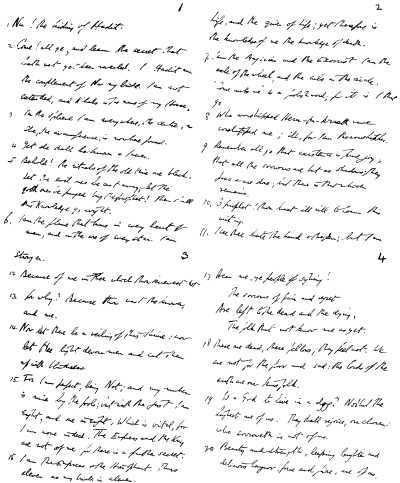 1
1. Nu! the hiding of Hadit.
2. Come! all ye, and learn the secret that
hath not yet been revealed. I Hadit am
the complement of Nu my bride. I am not
extended, and Khabs is the name of my House.
3. In the sphere I am everywhere, the centre, as
she, the circumference, is nowhere found.
4. Yet she shall be known & I never.
5. Behold! the rituals of the old time are black.
Let the evil ones be cast away; let the
good ones be purged by the prophet! Then shall
this Knowledge go aright.
6. I am the flame that burns in every heart of
man, and in the core of every star. I am
2
Life, and the giver of Life; yet therefore is
the knowledge of me the knowledge of death.
7. I am the Magician and the Exorcist. I am the
axle of the wheel, and the cube in the circle.
"Come unto me" is a foolish word; for it is I that
go.
8. Who worshipped Heru-pa-kraath have
worshipped me; ill, for I am the worshipper.
9. Remember all ye that existence is pure joy;
that all the sorrows are but as shadows; they
pass & are done; but there is that which
remains.
10. O prophet! thou hast ill will to learn this
writing.
11. I see thee hate the hand & the pen; but I am
3
stronger.
12. Because of me in Thee which thou knewest not.
13. for why? Because thou wast the knower,
and me.
14. Now let there be a veiling of this shrine: now
let the light devour men and eat them
up with blindness
15. For I am perfect, being Not; and my number
is nine by the fools; but with the just I am
eight, and one in eight: Which is vital, for
I am none indeed. The Empress and the King
are not of me; for there is a further secret.
16. I am the Empress & the Hierophant. Thus
eleven as my bride is eleven.
4
17. Hear me, ye people of sighing!
The sorrows of pain and regret
Are left to the dead and the dying,
The folk that not know me as yet.
18. These are dead, these fellows; they feel not. We
are not for the poor and sad: the lords of the
earth are our kinsfolk.
19. Is a God to live in a dog? No! but the
highest are of us. They shall rejoice, our chosen:
who sorroweth is not of us.
20. Beauty and strength, leaping laughter and
delicious languor, force and fire, are of us.